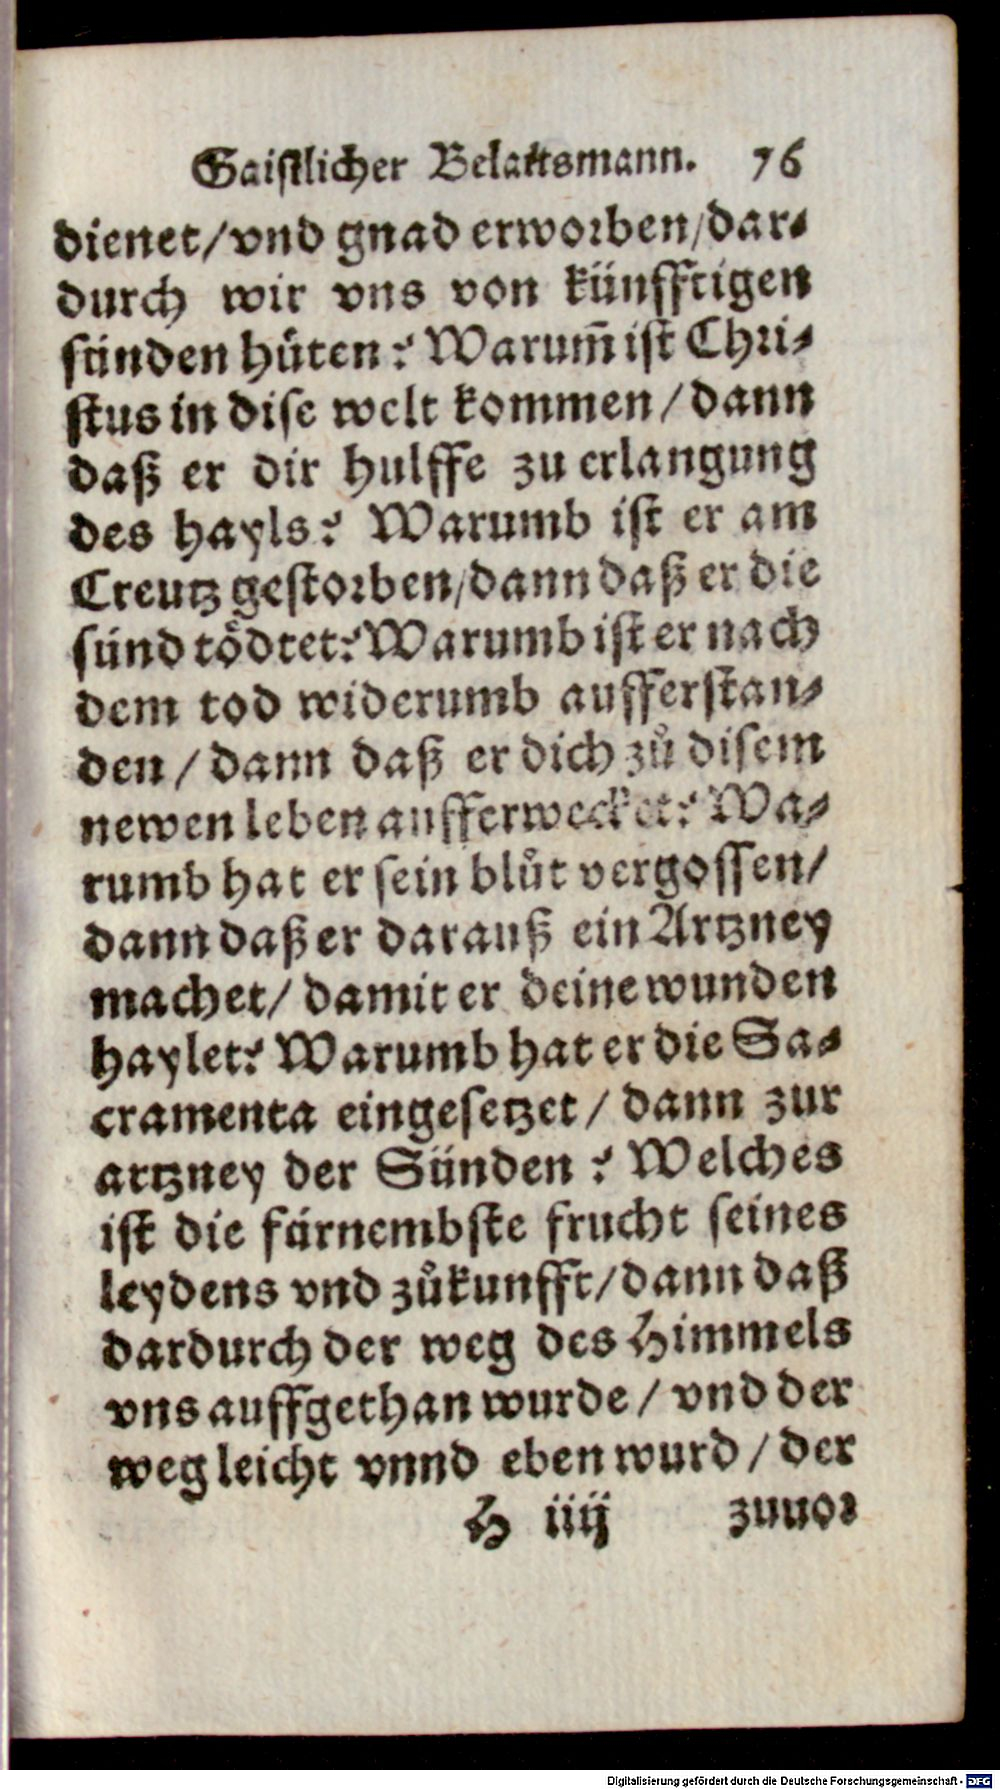 Gaistlicher Belaitsmann. 76
dienet/vnd gnad erworben/dar-
durch wir vns von künfftigen
sünden hüten? Warum̃ ist Chri-
stus in dise welt kommen/dann
daß er dir hulffe zu erlangung
des hayls? Warumb ist er am
Creutz gestorben/dann daß er die
sünd tödtet? Warumb ist er nach
dem tod widerumb aufferstan-
den/dann daß er dich zů disem
newen leben aufferwecket? Wa-
rumb hat er sein blůt vergossen/
dann daß er darauß ein Artzney
machet/damit er deine wunden
haylet? Warumb hat er die Sa-
cramenta eingesetzet/dann zur
artzney der Sünden? Welches
ist die fürnembste frucht seines
leydens vnd zůkunfft/dann daß
dardurch der weg des Himmels
vns auffgethan wurde/vnd der
weg leicht vnnd eben wurd/der
H iiij zuuor
Digitalisierung gefördert durch die Deutsche Forschungsgemeinschaft - DFG